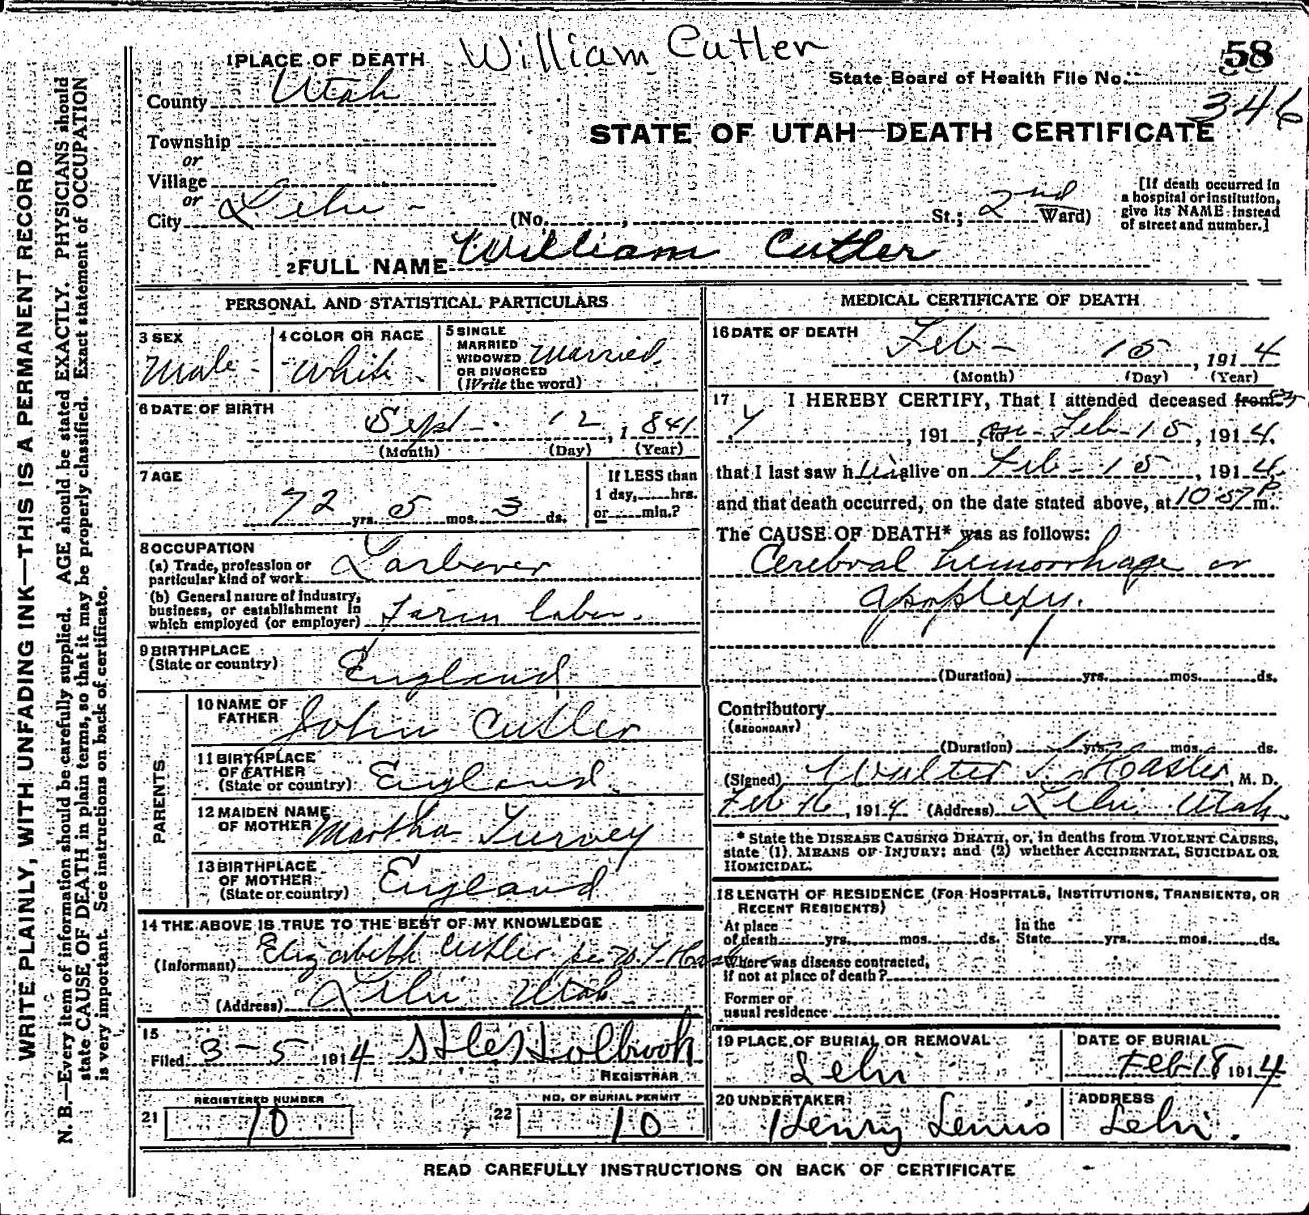 William Cutler
58
1 PLACE OF DEATH
State Board of Health File No.
346
County Utah
STATE OF UTAH—DEATH CERTIFICATE
Township
or
Village
or
City Lehi (No. , St.; 2nd Ward)
[If death occurred in a hospital or institution, give its NAME instead of street and number.]
2 FULL NAME William Cutler
PERSONAL AND STATISTICAL PARTICULARS
3 SEX
Male
4 COLOR OR RACE
White
5 SINGLE
MARRIED
WIDOWED
OR DIVORCED
(Write the word)
Married
6 DATE OF BIRTH
Sept. 12, 1841
(Month) (Day) (Year)
7 AGE
72 yrs. 5 mos. 3 ds.
If LESS than
1 day, hrs.
or min.?
8 OCCUPATION
(a) Trade, profession or
particular kind of work
(b) General nature of industry,
business, or establishment in
which employed (or employer) Farm labor.
9 BIRTHPLACE
(State or country) England
PARENTS
10 NAME OF
FATHER John Cutler
11 BIRTHPLACE
OF FATHER
(State or country) England
12 MAIDEN NAME
OF MOTHER Martha Turvey
13 BIRTHPLACE
OF MOTHER
(State or country) England
14 THE ABOVE IS TRUE TO THE BEST OF MY KNOWLEDGE
(Informant) Elizabeth Cutler per
(Address) Lehi Utah
15
Filed 3-5 1914 Holbrook
REGISTRAR
21 REGISTERED NUMBER
10
22 NO. OF BURIAL PERMIT
10
MEDICAL CERTIFICATE OF DEATH
16 DATE OF DEATH
Feb- 15, 1914
(Month) (Day) (Year)
17 I HEREBY CERTIFY, That I attended deceased from
, 191 , to on Feb-15, 1914.
that I last saw him alive on Feb-15, 1914.
and that death occurred, on the date stated above, at 10-57 P m.
The CAUSE OF DEATH* was as follows:
Cerebral hemorrhage or
apoplexy.
(Duration) yrs. mos. ds.
Contributory
(SECONDARY)
(Duration) yrs. mos. ds.
(Signed) Walter T. Hasler, M. D.
Feb 16, 1914 (Address) Lehi Utah
* State the DISEASE CAUSING DEATH, or, in deaths from VIOLENT CAUSES,
state (1) MEANS OF INJURY; and (2) whether ACCIDENTAL, SUICIDAL OR
HOMICIDAL.
18 LENGTH OF RESIDENCE (FOR HOSPITALS, INSTITUTIONS, TRANSIENTS, OR
RECENT RESIDENTS)
At place
of death yrs. mos. ds. In the State yrs. mos. ds.
Where was disease contracted,
if not at place of death?
Former or
usual residence
19 PLACE OF BURIAL OR REMOVAL
Lehi
DATE OF BURIAL
Feb 18 1914
20 UNDERTAKER
Henry Lewis
ADDRESS
Lehi.
READ CAREFULLY INSTRUCTIONS ON BACK OF CERTIFICATE
WRITE PLAINLY, WITH UNFADING INK—THIS IS A PERMANENT RECORD
N. B.—Every item of information should be carefully supplied. AGE should be stated EXACTLY. PHYSICIANS should
state CAUSE OF DEATH in plain terms, so that it may be properly classified. Exact statement of OCCUPATION
is very important. See instructions on back of certificate.